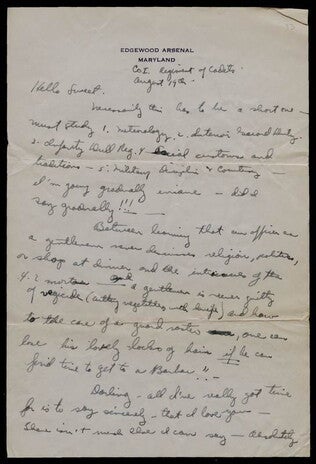 EDGEWOOD ARSENAL
MARYLAND
Co I. Regiment of Cadets
August 19th.
Hello Sweet.
Necessarily this has to be a short one –
must study 1. Meteorology 2. Interior Guard Duty
3. Infantry Drill Reg. 4 Social customs and
traditions – 5. Military Discipline & Courtesy –
I'm going gradually insane – did I
say gradually!!!
Between learning that an officer and
a gentleman never discusses religion, politics,
or shop at dinner and the intricacies of the
4.2 mortar and a gentleman is never guilty
of (cutting vegetables with knife) and how
to the care of a guard roster, one can
lose his lovely locks of hair if he can
find time to get to a Barber!!
Darling – all I've really got time
for is to say sincerely – that I love you –
There isn't much else I can say – Absolutely